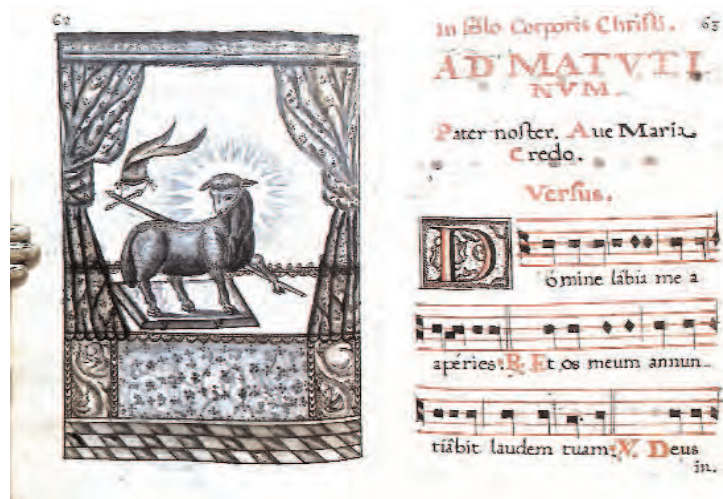 62
In festo Corporis Christi. 63
AD MATVTI
NVM.
Pater noster. Aue Maria
Credo.
Versus.
Dómine lábia me a
apéries: R. Et os meum annun-
tiâbit laudem tuam: V. Deus
in.